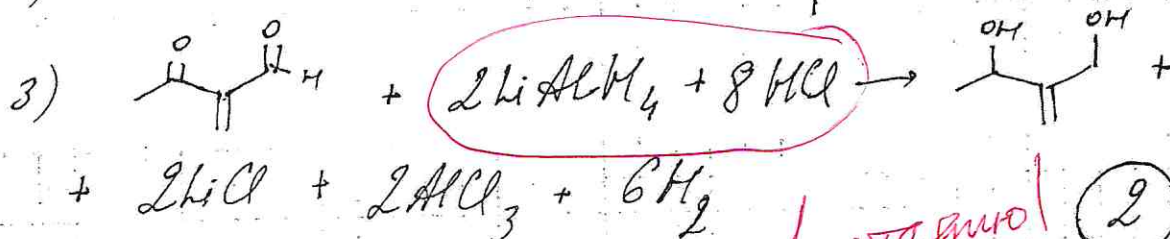 3) O O H + 2LiAlH₄ + 8HCl → OH OH +
+ 2LiCl + 2AlCl₃ + 6H₂ 2